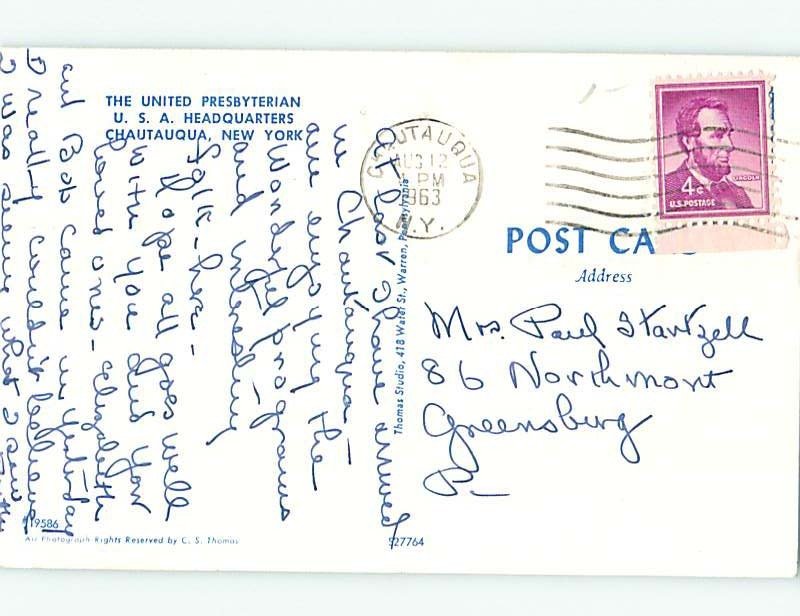 THE UNITED PRESBYTERIAN
U. S. A. HEADQUARTERS
CHAUTAUQUA, NEW YORK
CHAUTAUQUA
AUG 12
PM
1963
N.Y.
4¢
LINCOLN
U.S. POSTAGE
POST CA
Address
Mrs. Paul Startzell
86 Northmont
Greensburg
Pa
At last I have arrived
in Chautauqua—
am enjoying the
wonderful programs
and interesting
talk—here—
Hope all goes well
with you and your
loved ones— Elizabeth
and Bob came in yesterday
I really couldn't believe
I was seeing what I saw
Thomas Studio, 418 Water St., Warren, Pennsylvania
#19586
All Photograph Rights Reserved by C. S. Thomas
S27764